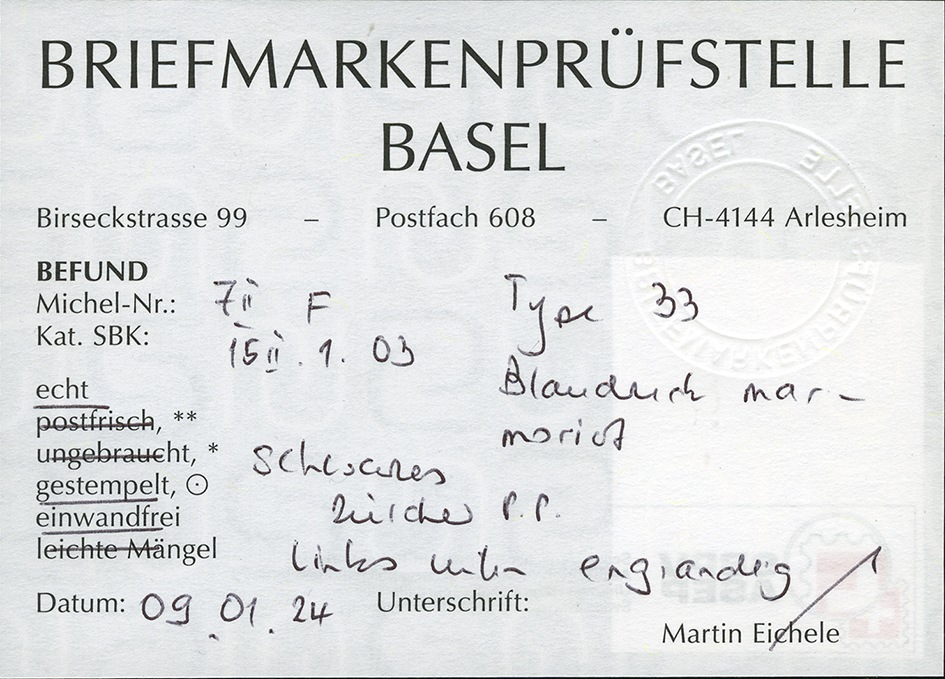 BRIEFMARKENPRÜFSTELLE
BASEL
Birseckstrasse 99 – Postfach 608 – CH-4144 Arlesheim
BEFUND
Michel-Nr.: 7II F Type 33
Kat. SBK: 15II.1.03
echt
Blaudruck mar-
postfrisch, **
moriert
ungebraucht, *
Schwarzes
gestempelt, ⊙
Zürcher P.P.
einwandfrei
leichte Mängel
links unten engrandig
Datum: 09.01.24 Unterschrift:
Martin Eichele